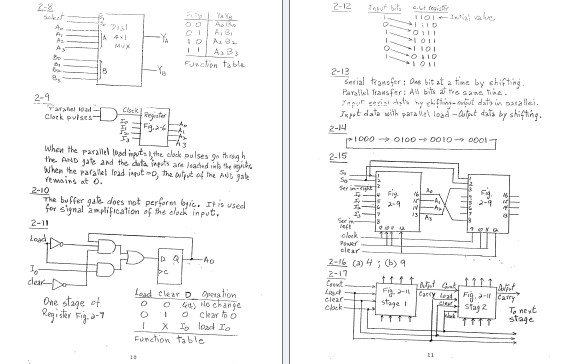 2-8
Select
A0
A1
A2
A3
B0
B1
B2
B3
Dual
4x1
MUX
A
B
YA
YB
S1 S0 YA YB
0 0 A0 B0
0 1 A1 B1
1 0 A2 B2
1 1 A3 B3
Function table
2-9
Parallel load
Clock pulses
Clock
Register
Fig. 2-6
I0
I1
I2
I3
A0
A1
A2
A3
When the parallel load input = 1, the clock pulses go through
the AND gate and the data inputs are loaded into the register.
When the parallel load input = 0, the output of the AND gate
remains at 0.
2-10
The buffer gate does not perform logic. It is used
for signal amplification of the clock input.
2-11
Load
I0
clear
D Q
C
A0
One stage of
Register Fig. 2-7
Load clear D Operation
0 0 No change
0 1 0 Clear to 0
1 X I0 load I0
Function table
10
2-12 Input bits
1101 ← Initial value
2-13
Serial transfer: One bit at a time by shifting.
Parallel transfer: All bits at the same time.
Input serial data by shifting-output data in parallel.
Input data with parallel load - Output data by shifting.
2-14
1000 → 0100 → 0010 → 0001
2-15
S1
S0
Ser in-right
Ser in
left
clock
Power
clear
Fig.
2-9
A0
A1
A2
A3
Fig.
2-9
2-16 (a) 4 ; (b) 9
2-17
Count
Load
clear
clock
Fig. 2-11
Stage 1
Output
Carry
Count
Load
clear
clock
Fig. 2-11
Output
Carry
To next
stage
11